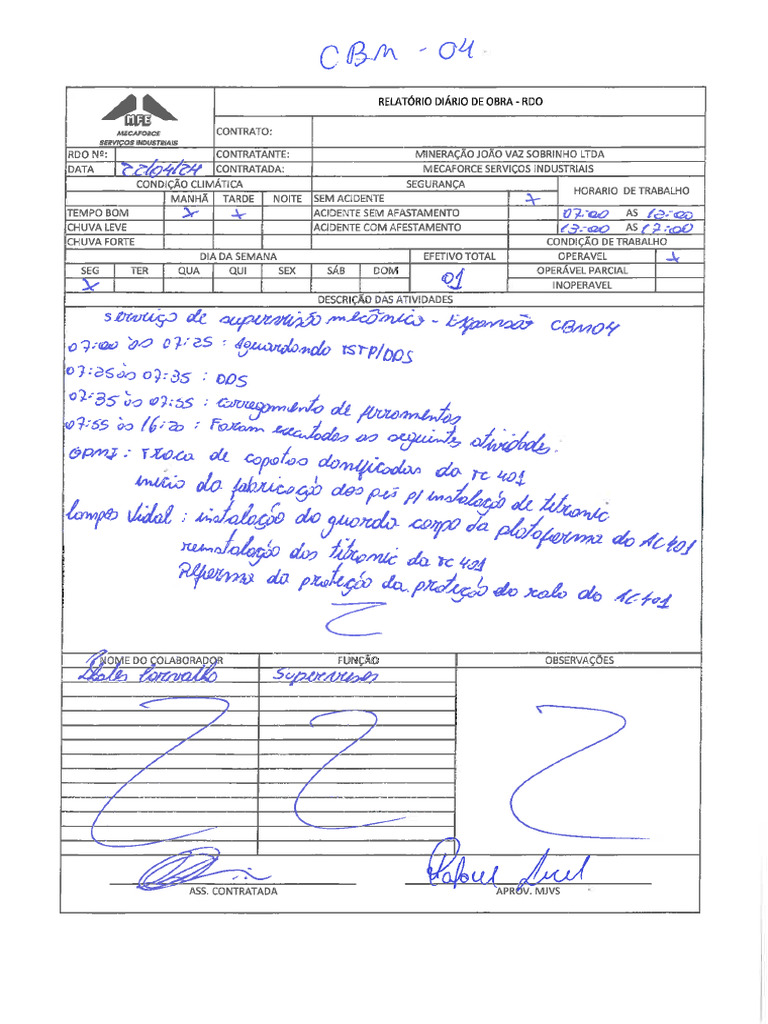 CBM - 04
RELATÓRIO DIÁRIO DE OBRA - RDO
MFE
MECAFORCE
SERVIÇOS INDUSTRIAIS
CONTRATO:
RDO Nº: CONTRATANTE: MINERAÇÃO JOÃO VAZ SOBRINHO LTDA
DATA 22/04/24 CONTRATADA: MECAFORCE SERVIÇOS INDUSTRIAIS
CONDIÇÃO CLIMÁTICA SEGURANÇA HORARIO DE TRABALHO
MANHÃ TARDE NOITE SEM ACIDENTE x
TEMPO BOM x x ACIDENTE SEM AFASTAMENTO 07:00 AS 12:00
CHUVA LEVE ACIDENTE COM AFESTAMENTO 13:00 AS 17:00
CHUVA FORTE CONDIÇÃO DE TRABALHO
DIA DA SEMANA EFETIVO TOTAL OPERAVEL x
SEG TER QUA QUI SEX SÁB DOM 01 OPERÁVEL PARCIAL
x INOPERAVEL
DESCRIÇÃO DAS ATIVIDADES
Serviço de supervisão mecânica - Expansão CBM04
07:00 às 07:25 : Aguardando TSTP/DDS
07:25 às 07:35 : DDS
07:35 às 07:55 : Carregamento de ferramentas
07:55 às 16:20 : Foram executadas as seguintes atividades:
GPMI : Troca de capotas danificadas da TC 401
início da fabricação dos pés p/ instalação de titronic
Campos Vidal : instalação do guarda corpo da plataforma do AC401
reinstalação dos titronic da TC 401
Reforma da proteção da proteção do ralo do AC-401
NOME DO COLABORADOR FUNÇÃO OBSERVAÇÕES
Carvalho Supervisor
Rafael
ASS. CONTRATADA APROV. MJVS